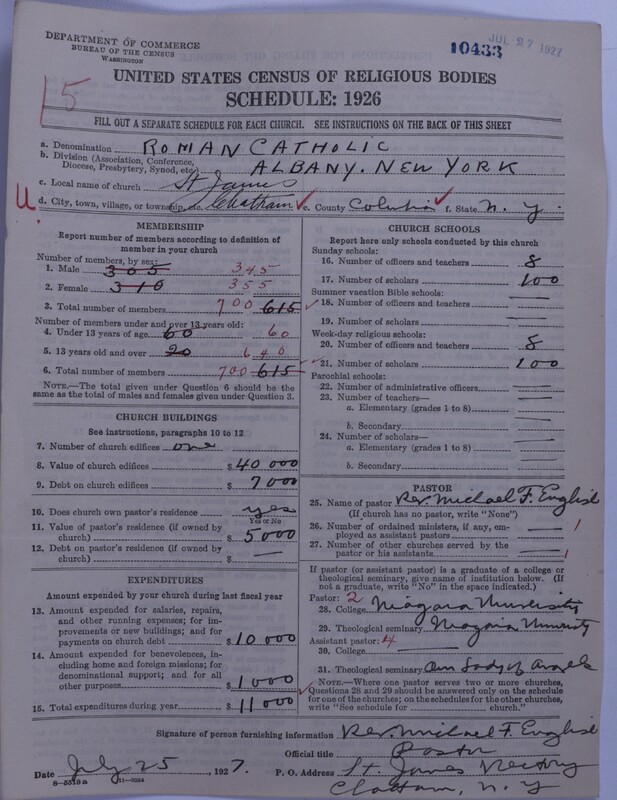 DEPARTMENT OF COMMERCE
BUREAU OF THE CENSUS
WASHINGTON
10433
JUL 27 1927
UNITED STATES CENSUS OF RELIGIOUS BODIES
SCHEDULE: 1926
15
FILL OUT A SEPARATE SCHEDULE FOR EACH CHURCH. SEE INSTRUCTIONS ON THE BACK OF THIS SHEET
a. Denomination ROMAN CATHOLIC
b. Division (Association, Conference, Diocese, Presbytery, Synod, etc.) ALBANY. NEW YORK
c. Local name of church St James
U d. City, town, village, or township, etc. Chatham e. County Columbia f. State N. Y.
MEMBERSHIP
Report number of members according to definition of
member in your church
Number of members, by sex:
1. Male 305 345
2. Female 310 355
3. Total number of members 700 615
Number of members under and over 13 years old:
4. Under 13 years of age 60 60
5. 13 years old and over 20 640
6. Total number of members 700 615
NOTE.—The total given under Question 6 should be
same as the total of males and females given under Question 3.
CHURCH BUILDINGS
See instructions, paragraphs 10 to 12
7. Number of church edifices one
8. Value of church edifices $ 40 000
9. Debt on church edifices $ 7 000
10. Does church own pastor's residence yes
Yes or No
11. Value of pastor's residence (if owned by
church) $ 5 000
12. Debt on pastor's residence (if owned by
church) $ —
EXPENDITURES
Amount expended by your church during last fiscal year
13. Amount expended for salaries, repairs,
and other running expenses; for im-
provements or new buildings; and for
payments on church debt $ 10 000
14. Amount expended for benevolences, in-
cluding home and foreign missions; for
denominational support; and for all
other purposes $ 1 000
15. Total expenditures during year $ 11 000
CHURCH SCHOOLS
Report here only schools conducted by this church
Sunday schools:
16. Number of officers and teachers 8
17. Number of scholars 100
Summer vacation Bible schools:
18. Number of officers and teachers —
19. Number of scholars —
Week-day religious schools:
20. Number of officers and teachers 8
21. Number of scholars 100
Parochial schools:
22. Number of administrative officers —
23. Number of teachers—
a. Elementary (grades 1 to 8) —
b. Secondary —
24. Number of scholars—
a. Elementary (grades 1 to 8) —
b. Secondary —
PASTOR
25. Name of pastor Rev Michael F. English
(If church has no pastor, write "None")
26. Number of ordained ministers, if any, em-
ployed as assistant pastors — 1
27. Number of other churches served by the
pastor or his assistants — 1
If pastor (or assistant pastor) is a graduate of a college or
theological seminary, give name of institution below. (If
not a graduate, write "No" in the space indicated.)
Pastor: 2
28. College Niagara University
29. Theological seminary Niagara University
Assistant pastor: 4
30. College —
31. Theological seminary Our Lady of Angels
NOTE.—Where one pastor serves two or more churches,
Questions 28 and 29 should be answered only on the schedule
for one of the churches; on the schedules for the other churches,
write "See schedule for church."
Signature of person furnishing information Rev. Michael F. English
Official title Pastor
Date July 25, 1927. P. O. Address St. James Rectory
8—5519a 11—9024
Chatham, N. Y